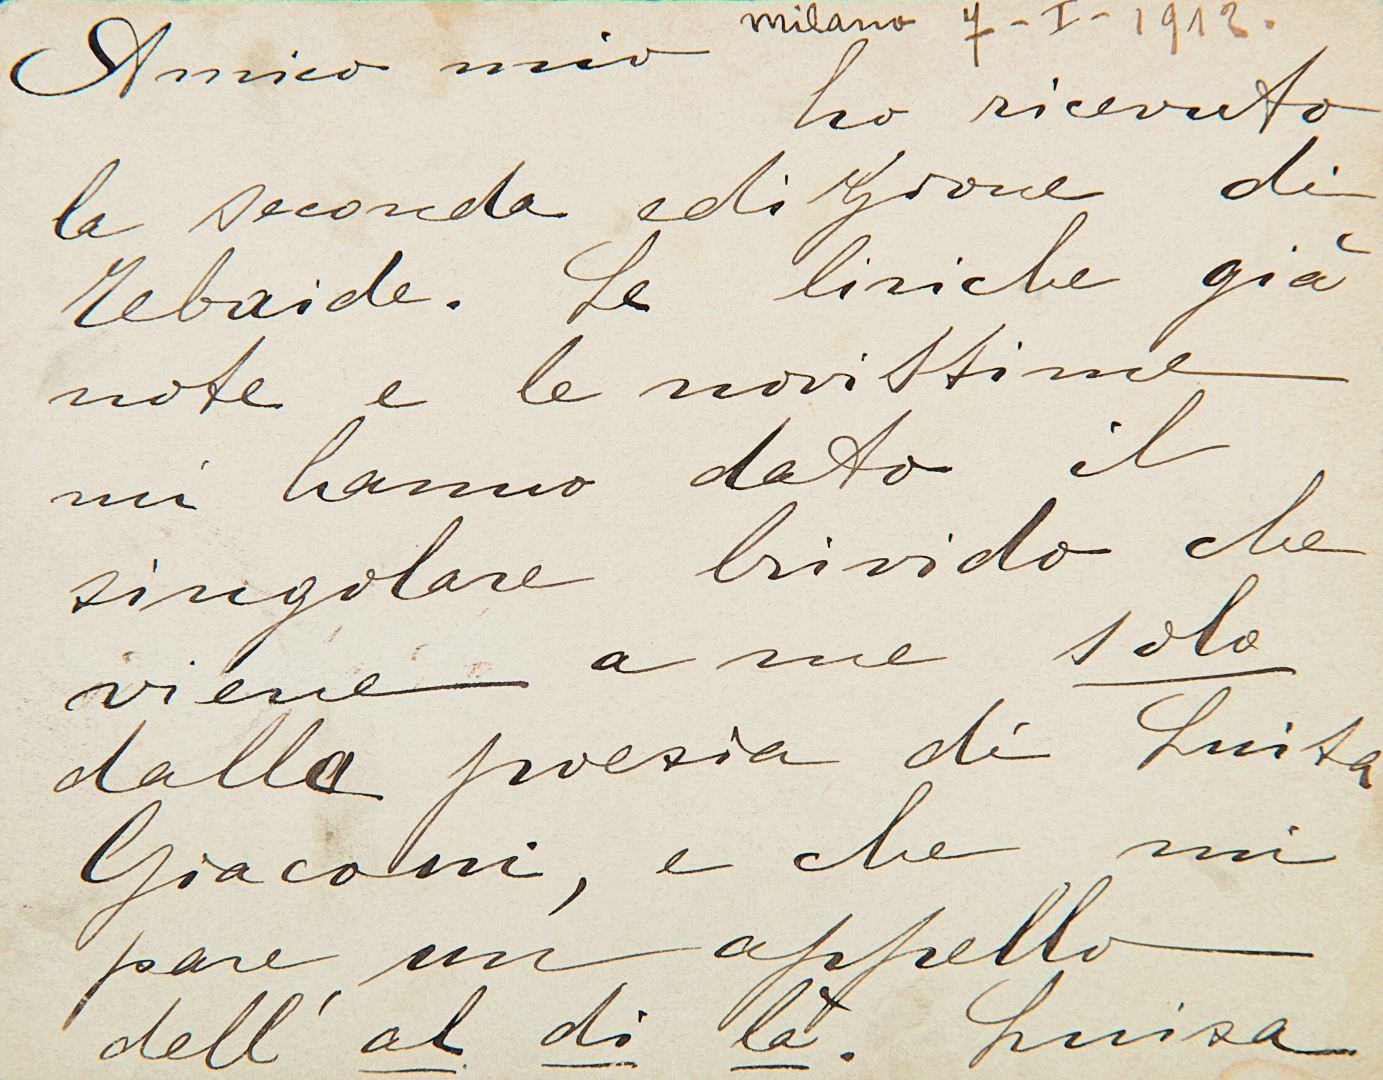 Milano 7-I-1912.
Amico mio
ho ricevuto
la seconda edizione di
Tebaide. Le liriche già
note e le novissime
mi hanno dato il
singolare brivido che
viene a me solo
dalla poesia di Luisa
Giaconi, e che mi
pare un appello
dell' al di là. Luisa